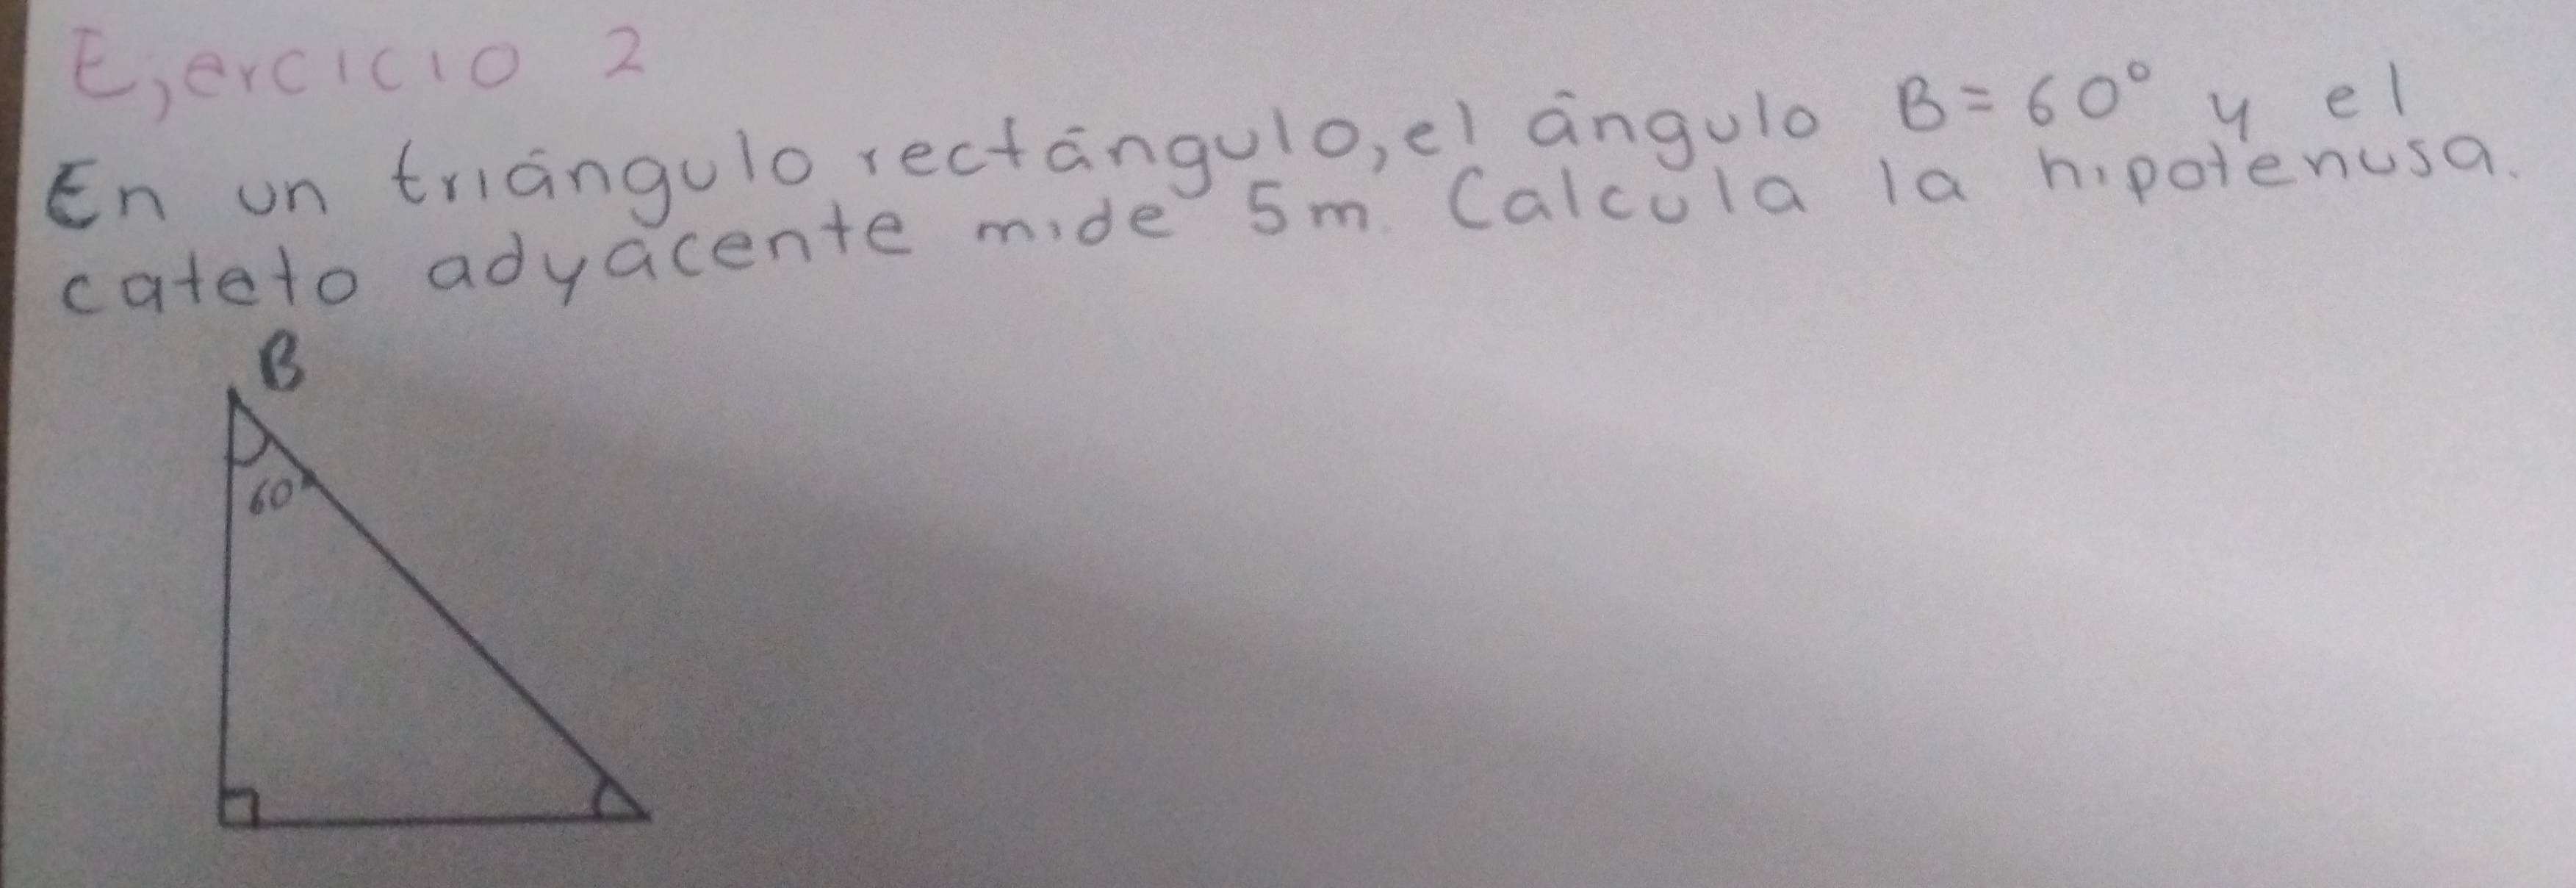 Ejercicio 2
En un triángulo rectángulo, el ángulo B = 60° y el
cateto adyacente mide 5m. Calcula la hipotenusa.
B
60°